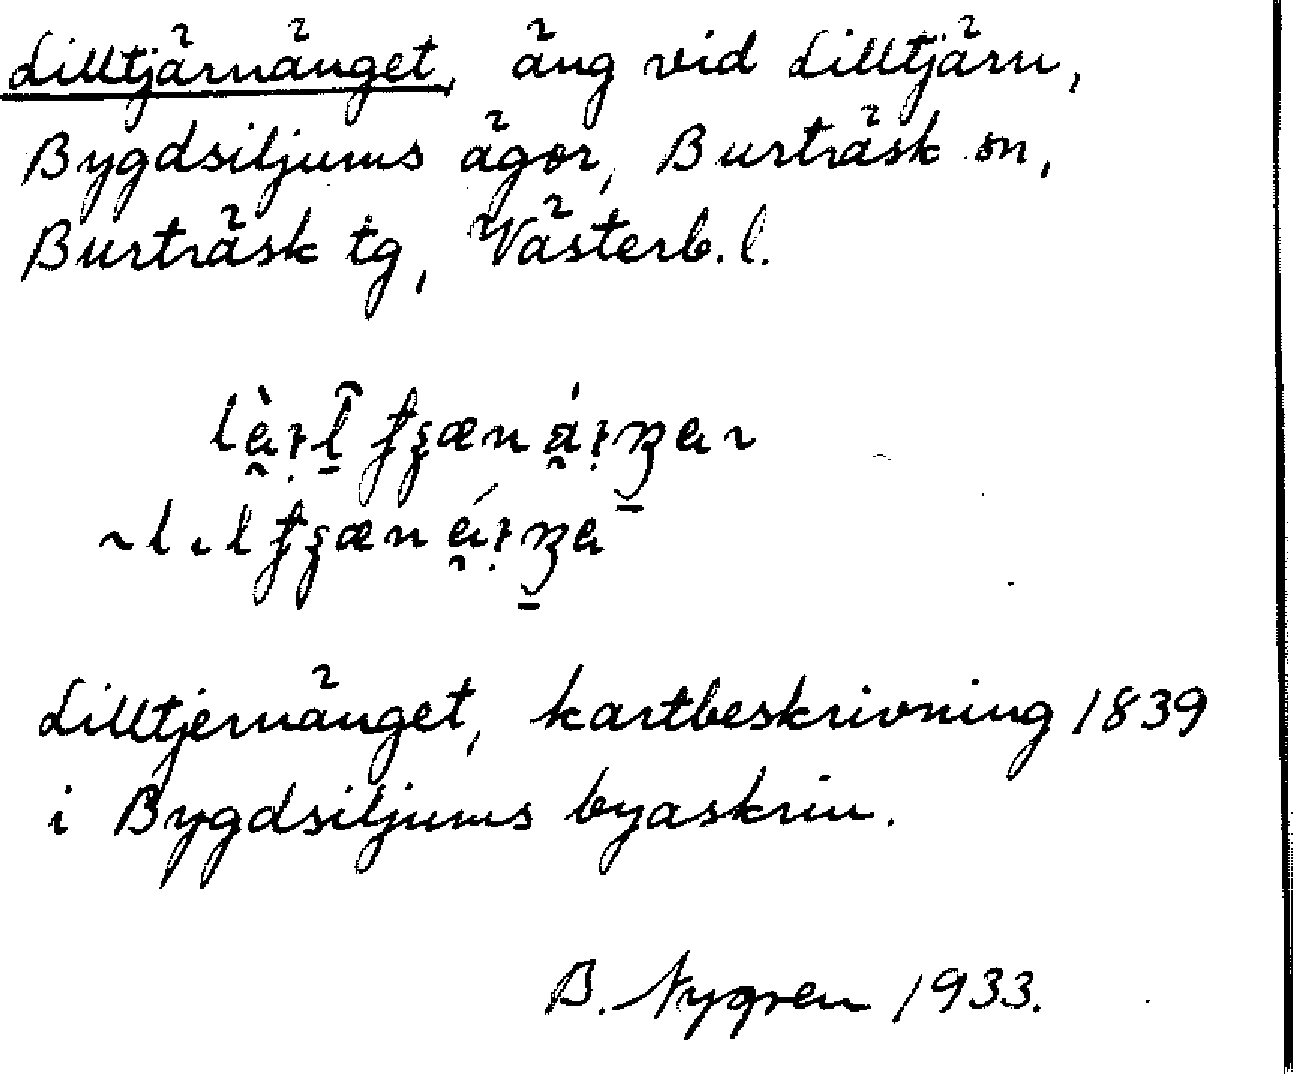 Lilltjärnänget, äng vid Lilltjärn,
Bygdsiljums ägor, Burträsk sn,
Burträsk tg, Västerb. l.
Lilltjernänget, kartbeskrivning 1839
i Bygdsiljums byaskrin.
B. Nygren 1933.